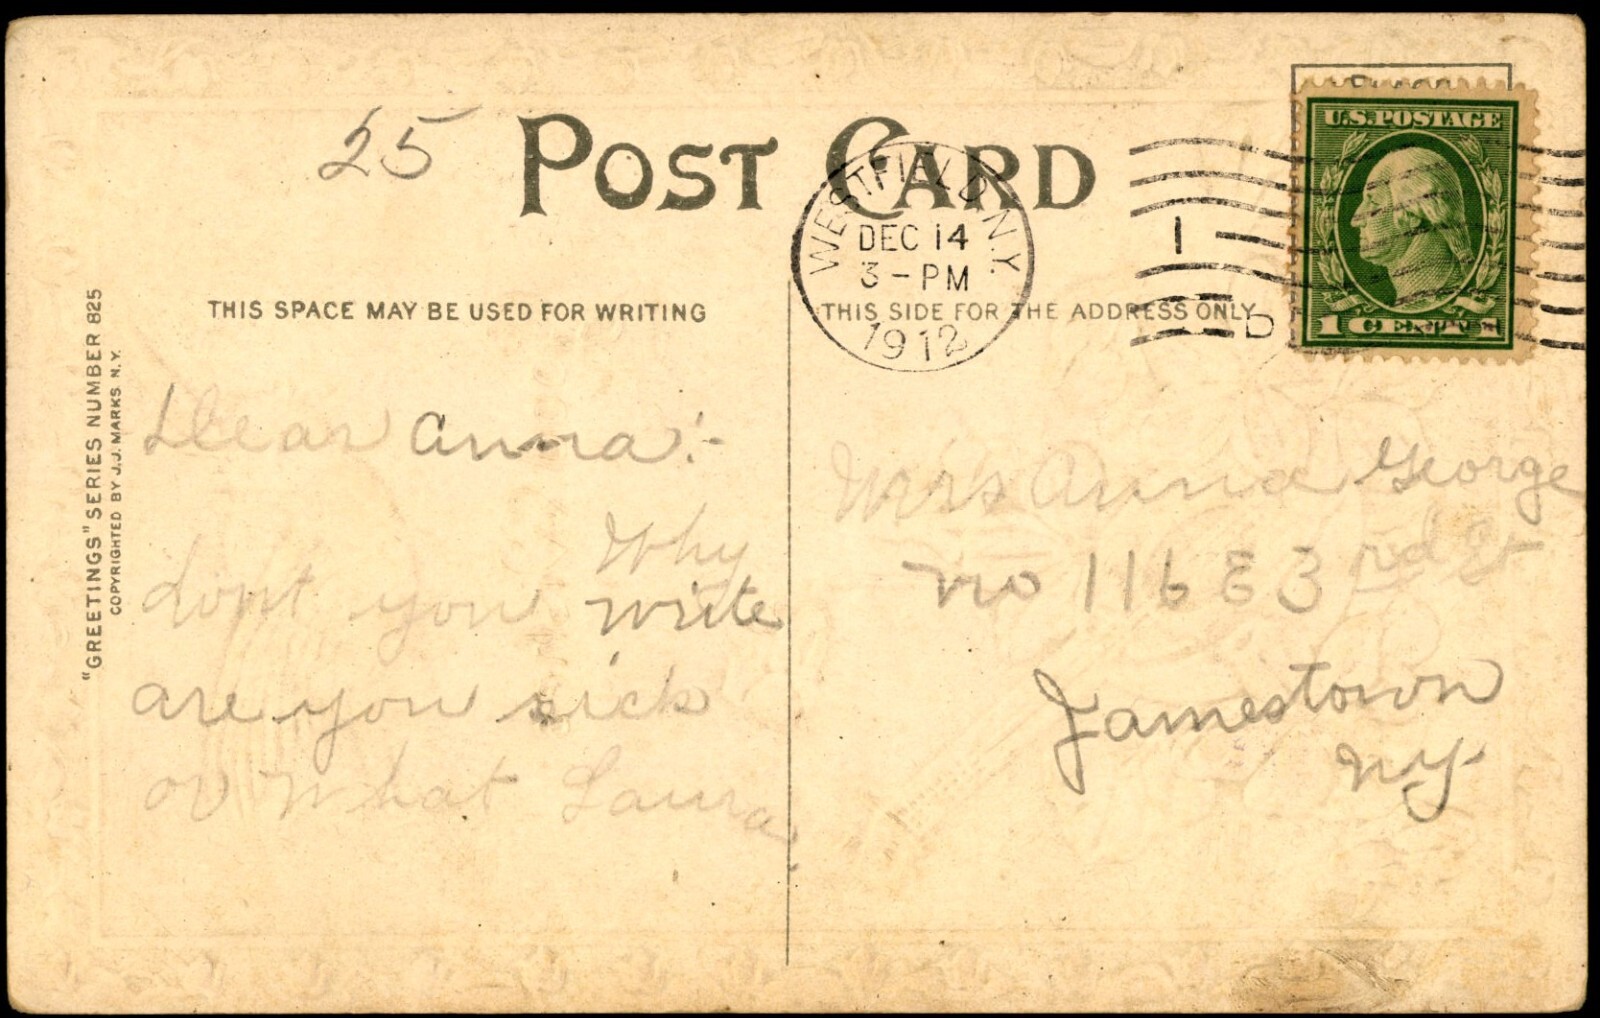 25
POST CARD
WESTFIELD, N.Y.
DEC 14
3-PM
1912
1
D
U.S. POSTAGE
1 CENT 1
THIS SPACE MAY BE USED FOR WRITING
THIS SIDE FOR THE ADDRESS ONLY
"GREETINGS" SERIES NUMBER 825
COPYRIGHTED BY J.J. MARKS N.Y.
Dear Anna:-
Why
dont you write
are you sick
or what Laura
Mrs Anna George
no 116 E 3rd St
Jamestown
NY